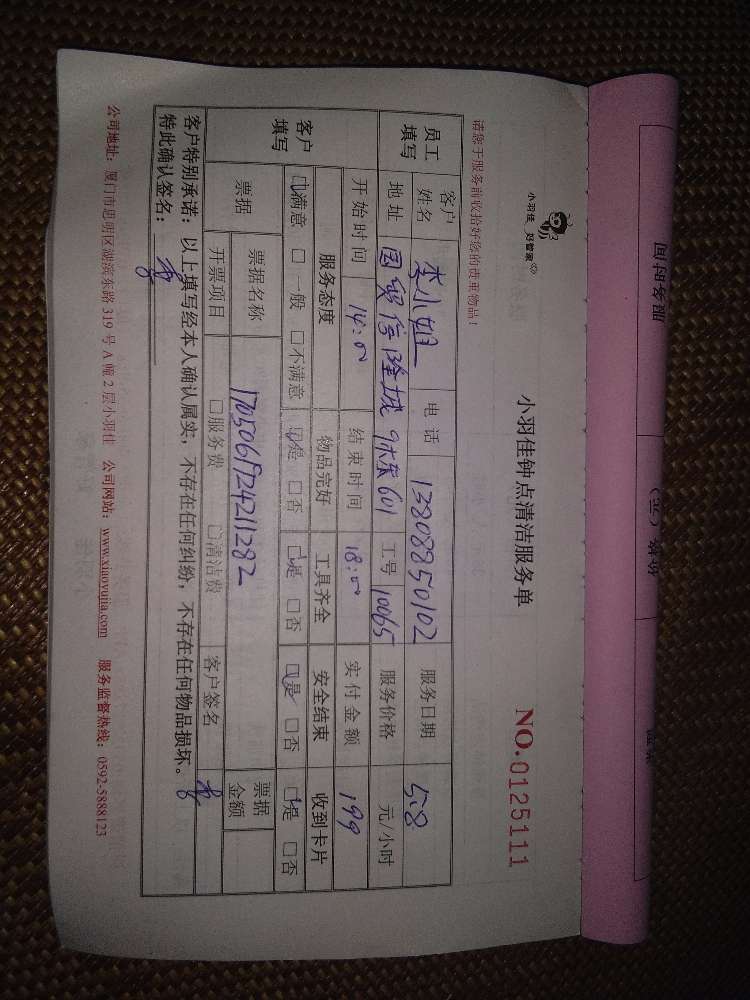 小羽佳 好管家
小羽佳钟点清洁服务单
NO.0125111
请您于服务前收拾好您的贵重物品！
员工填写 客户姓名 李小姐 电话 13808850102 服务日期 5.8
地址 国贸信隆城9栋601 工号 10065 服务价格 元/小时
客户填写 开始时间 14:00 结束时间 18:00 实付金额 199
服务态度 物品完好 工具齐全 安全结束 收到卡片
□满意 □一般 □不满意 □是 □否 □是 □否 □是 □否 □是 □否
票据 票据名称 1705061724211282 票据金额
开票项目 □服务费 □清洁费 客户签名
客户特别承诺：以上填写经本人确认属实，不存在任何纠纷，不存在任何物品损坏。
特此确认签名：
公司地址：厦门市思明区湖滨东路319号A幢2层小羽佳 公司网站：www.xiaoyujia.com 服务监督热线：0592-5888123